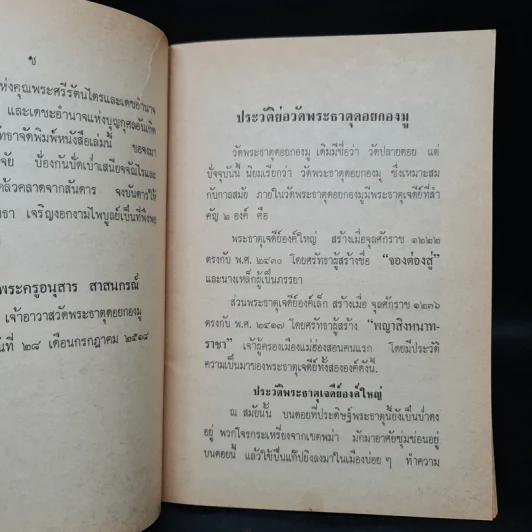 ช
ห่งคุณพระศรีรัตนไตรและเดชอำนาจ
และเดชะอำนาจแห่งบุญกุศลอันเกิด
ัทธาจัดพิมพ์หนังสือเล่มนี้ ขอจงมา
จัย ป้องกันปัดเป่าเสนียดจัญไรและ
คล้วคลาดจากสันดาร จงบันดารให้
ธา เจริญงอกงามไพบูลย์เป็นที่พึงพอ
พระครูอนุสาร สาสนกรณ์
เจ้าอาวาสวัดพระธาตุดอยกองมู
นที่ ๒๘ เดือนกรกฎาคม ๒๕๑๔
ประวัติย่อวัดพระธาตุดอยกองมู
วัดพระธาตุดอยกองมู เดิมมีชื่อว่า วัดปลายดอย แต่
ปัจจุบันนี้ นิยมเรียกว่า วัดพระธาตุดอยกองมู ซึ่งเหมาะสม
กับกาลสมัย ภายในวัดพระธาตุดอยกองมูมีพระธาตุเจดีย์ที่สำ
คัญ ๒ องค์ คือ
พระธาตุเจดีย์องค์ใหญ่ สร้างเมื่อจุลศักราช ๑๒๒๒
ตรงกับ พ.ศ. ๒๔๓๐ โดยศรัทธาผู้สร้างชื่อ “จองต่องสู่”
และนางเหล็กผู้เป็นภรรยา
ส่วนพระธาตุเจดีย์องค์เล็ก สร้างเมื่อ จุลศักราช ๑๒๓๖
ตรงกับ พ.ศ. ๒๔๑๗ โดยศรัทธาผู้สร้าง “พญาสิงหนาท-
ราชา” เจ้าผู้ครองเมืองแม่ฮ่องสอนคนแรก โดยมีประวัติ
ความเป็นมาของพระธาตุเจดีย์ทั้งสององค์ดังนี้.
ประวัติพระธาตุเจดีย์องค์ใหญ่
ณ สมัยนั้น บนดอยที่ประดิษฐ์พระธาตุนี้ยังเป็นป่าดง
อยู่ พวกโจรกระเหรี่ยงจากเขตพม่า มักมาอาศัยซุ่มซ่อนอยู่
บนดอยนี้ แล้วใช้ปืนแก๊ปยิงลงมาในเมืองบ่อย ๆ ทำความ